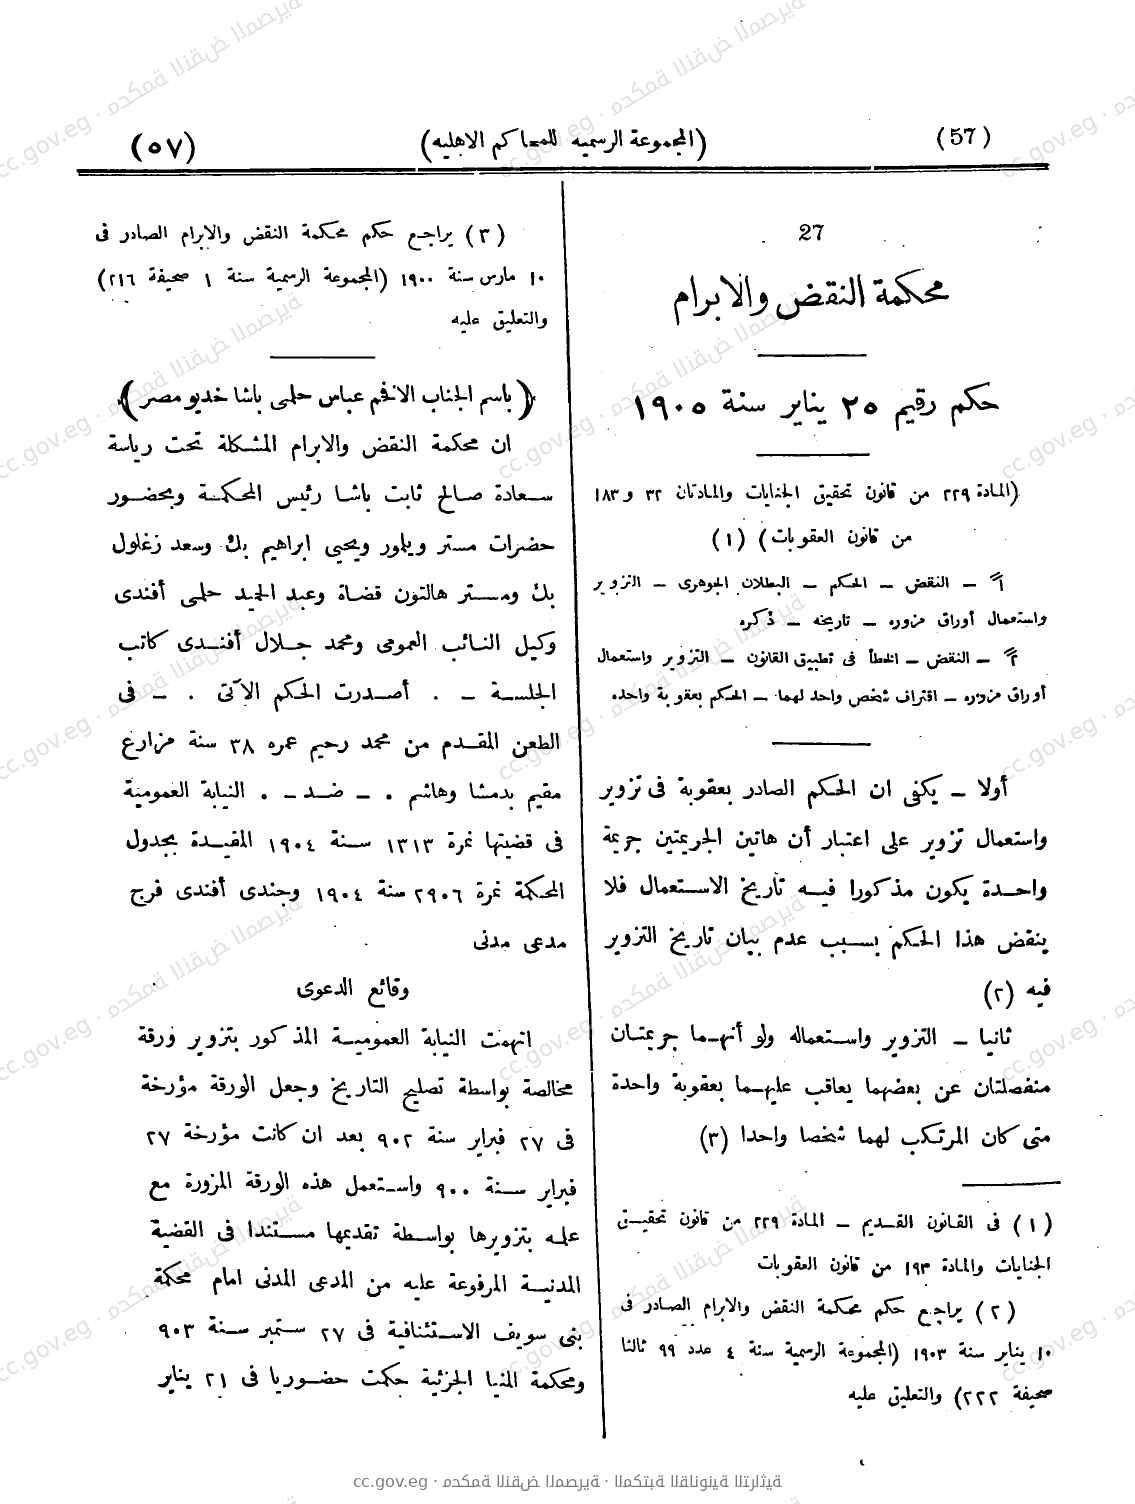 (57)
(المجموعة الرسميه للمحاكم الاهليه)
(٥٧)
27
محكمة النقض والابرام
حكم رقيم ٢٥ يناير سنة ١٩٠٥
(المادة ٢٢٩ من قانون تحقيق الجنايات والمادتان ٣٢ و ١٨٣
من قانون العقوبات) (١)
أً – النقض – الحكم – البطلان الجوهرى – التزوير
واستعمال أوراق مزوره – تاريخه – ذكره
– النقض – الخطأ فى تطبيق القانون – التزوير واستعمال
أوراق مزوره – اقتراف شخص واحد لهما – الحكم بعقوبة واحده
أولا – يكفى ان الحكم الصادر بعقوبة فى تزوير
واستعمال تزوير على اعتبار أن هاتين الجريمتين جريمة
واحدة يكون مذكورا فيه تاريخ الاستعمال فلا
ينقض هذا الحكم بسبب عدم بيان تاريخ التزوير
فيه (٢)
ثانيا – التزوير واستعماله ولو أنهما جريمتان
منفصلتان عن بعضهما يعاقب عليهما بعقوبة واحدة
متى كان المرتكب لهما شخصا واحدا (٣)
(١) فى القانون القديم – المادة ٢٢٩ من قانون تحقيق
الجنايات والمادة ١٩٣ من قانون العقوبات
(٢) يراجع حكم محكمة النقض والابرام الصادر فى
١٠ يناير سنة ١٩٠٣ (المجموعة الرسمية سنة ٤ عدد ٩٩ ثالثا
صحيفة ٢٢٢) والتعليق عليه
(٣) يراجع حكم محكمة النقض والابرام الصادر فى
١٠ مارس سنة ١٩٠٠ (المجموعة الرسمية سنة ١ صحيفة ٢١٦)
والتعليق عليه
(باسم الجناب الافخم عباس حلمى باشا خديو مصر)
ان محكمة النقض والابرام المشكلة تحت رياسة
سعادة صالح ثابت باشا رئيس المحكمة وبحضور
حضرات مستر ويلمور ويحيى ابراهيم بك وسعد زغلول
بك ومستر هالتون قضاة وعبد الحميد حلمى أفندى
وكيل النائب العمومى ومحمد جلال أفندى كاتب
الجلسة – . أصدرت الحكم الآتى . – فى
الطعن المقدم من محمد رحيم عمره ٣٨ سنة مزارع
مقيم بدمشا وهاشم . – ضد – . النيابة العمومية
فى قضيتها نمرة ١٣١٣ سنة ١٩٠٤ المقيدة بجدول
المحكمة نمرة ٢٩٠٦ سنة ١٩٠٤ وجندى أفندى فرج
مدعى مدنى
وقائع الدعوى
اتهمت النيابة العمومية المذكور بتزوير ورقة
مخالصة بواسطة تصليح التاريخ وجعل الورقة مؤرخة
فى ٢٧ فبراير سنة ٩٠٢ بعد ان كانت مؤرخة ٢٧
فبراير سنة ٩٠٠ واستعمل هذه الورقة المزورة مع
علمه بتزويرها بواسطة تقديمها مستندا فى القضية
المدنية المرفوعة عليه من المدعى المدنى امام محكمة
بنى سويف الاستئنافية فى ٢٧ ستمبر سنة ٩٠٣
ومحكمة المنيا الجزئية حكمت حضوريا فى ٢١ يناير
cc.gov.eg · محكمة النقض المصرية · المكتبة القانونية التراثية